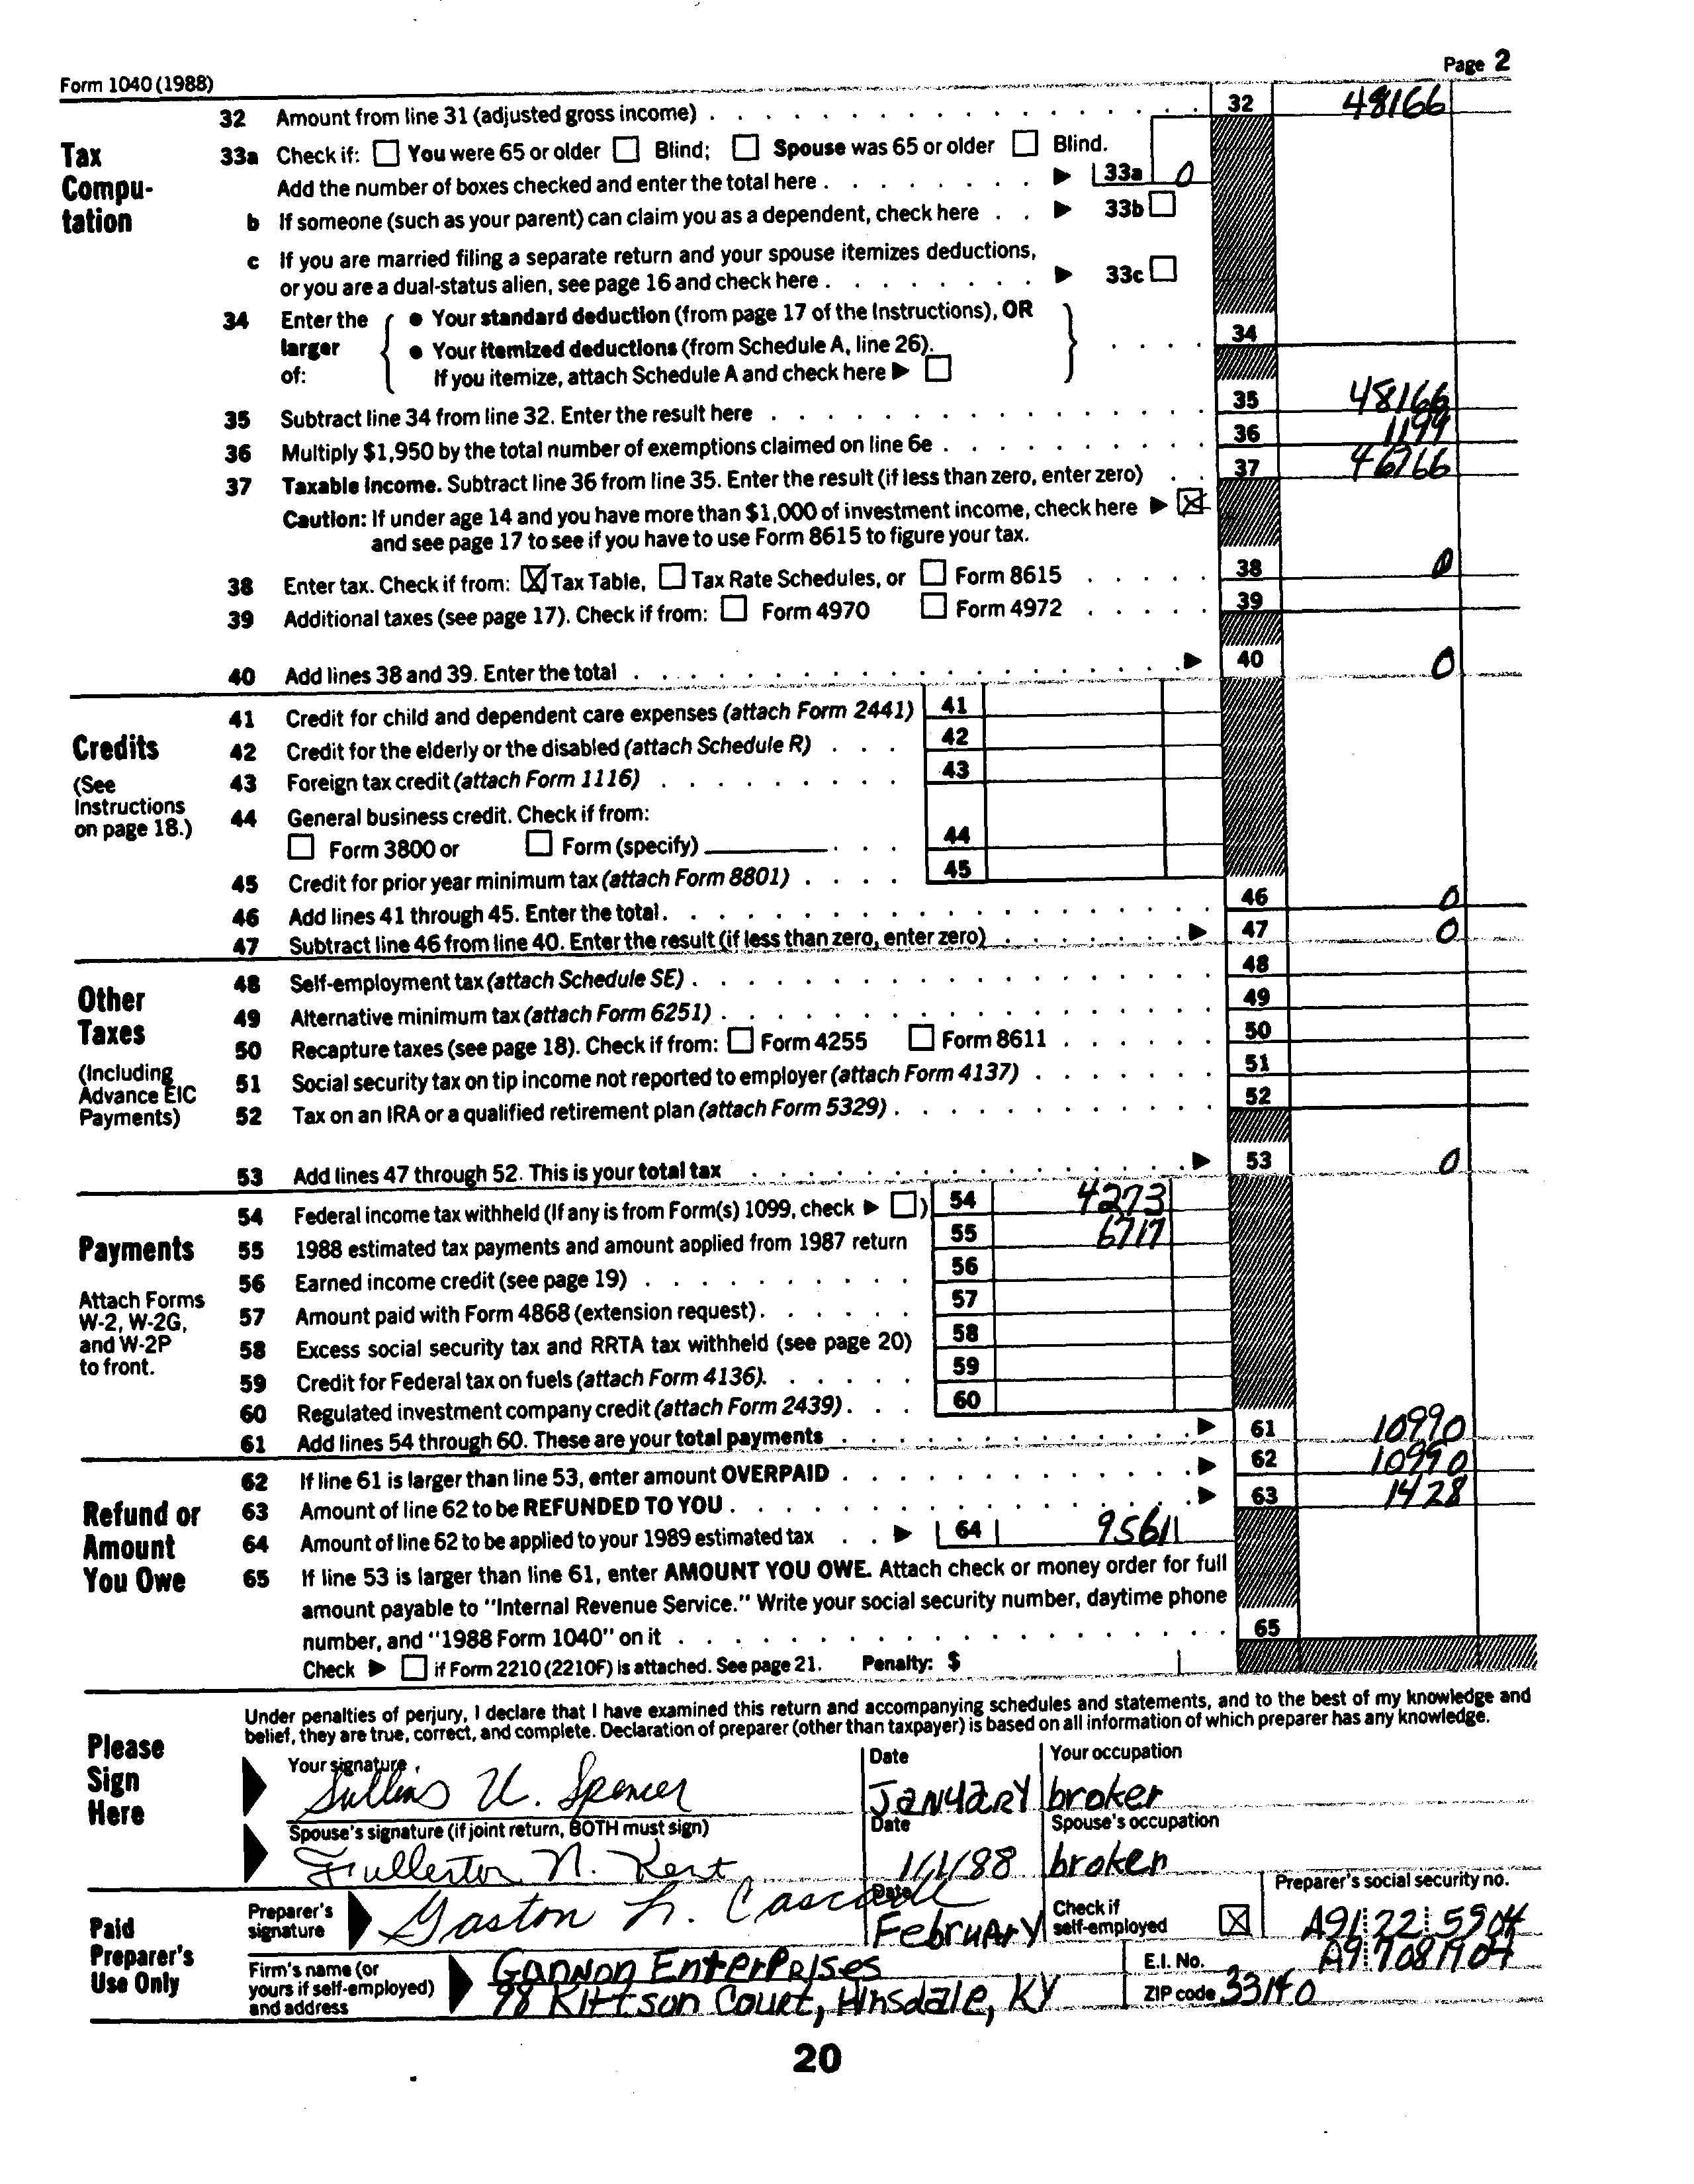 Form 1040 (1988) Page 2
32 Amount from line 31 (adjusted gross income) 32 48166
Tax Compu-tation
33a Check if: You were 65 or older Blind; Spouse was 65 or older Blind.
Add the number of boxes checked and enter the total here 33a 0
b If someone (such as your parent) can claim you as a dependent, check here 33b
c If you are married filing a separate return and your spouse itemizes deductions,
or you are a dual-status alien, see page 16 and check here 33c
34 Enter the larger of:
● Your standard deduction (from page 17 of the Instructions), OR
● Your itemized deductions (from Schedule A, line 26). 34
If you itemize, attach Schedule A and check here
35 Subtract line 34 from line 32. Enter the result here 35 48166
36 Multiply $1,950 by the total number of exemptions claimed on line 6e 36 1199
37 Taxable income. Subtract line 36 from line 35. Enter the result (if less than zero, enter zero) 37
Caution: If under age 14 and you have more than $1,000 of investment income, check here
and see page 17 to see if you have to use Form 8615 to figure your tax.
38 Enter tax. Check if from: X Tax Table, Tax Rate Schedules, or Form 8615 38 0
39 Additional taxes (see page 17). Check if from: Form 4970 Form 4972 39
40 Add lines 38 and 39. Enter the total 40 0
Credits
(See Instructions on page 18.)
41 Credit for child and dependent care expenses (attach Form 2441) 41
42 Credit for the elderly or the disabled (attach Schedule R) 42
43 Foreign tax credit (attach Form 1116) 43
44 General business credit. Check if from:
Form 3800 or Form (specify) 44
45 Credit for prior year minimum tax (attach Form 8801) 45
46 Add lines 41 through 45. Enter the total. 46 0
47 Subtract line 46 from line 40. Enter the result (if less than zero, enter zero) 47 0
Other Taxes
(Including Advance EIC Payments)
48 Self-employment tax (attach Schedule SE) 48
49 Alternative minimum tax (attach Form 6251) 49
50 Recapture taxes (see page 18). Check if from: Form 4255 Form 8611 50
51 Social security tax on tip income not reported to employer (attach Form 4137) 51
52 Tax on an IRA or a qualified retirement plan (attach Form 5329) 52
53 Add lines 47 through 52. This is your total tax 53 0
Payments
Attach Forms W-2, W-2G, and W-2P to front.
54 Federal income tax withheld (If any is from Form(s) 1099, check ) 54 4273
55 1988 estimated tax payments and amount applied from 1987 return 55 6717
56 Earned income credit (see page 19) 56
57 Amount paid with Form 4868 (extension request). 57
58 Excess social security tax and RRTA tax withheld (see page 20) 58
59 Credit for Federal tax on fuels (attach Form 4136). 59
60 Regulated investment company credit (attach Form 2439) 60
61 Add lines 54 through 60. These are your total payments 61 10990
Refund or Amount You Owe
62 If line 61 is larger than line 53, enter amount OVERPAID 62 10990
63 Amount of line 62 to be REFUNDED TO YOU 63 1428
64 Amount of line 62 to be applied to your 1989 estimated tax 64
65 If line 53 is larger than line 61, enter AMOUNT YOU OWE. Attach check or money order for full
amount payable to "Internal Revenue Service." Write your social security number, daytime phone
number, and "1988 Form 1040" on it 65
Check if Form 2210 (2210F) is attached. See page 21. Penalty: $
Please Sign Here
Under penalties of perjury, I declare that I have examined this return and accompanying schedules and statements, and to the best of my knowledge and
belief, they are true, correct, and complete. Declaration of preparer (other than taxpayer) is based on all information of which preparer has any knowledge.
Your signature Date Your occupation
Sullins U. Spencer JANUARY broker
Spouse's signature (if joint return, BOTH must sign) Date Spouse's occupation
Fullerton N. Kent 1/1/88 broker
Paid Preparer's Use Only
Preparer's signature Gaston L. Date February Check if self-employed X Preparer's social security no. A91 22 5904
Firm's name (or yours if self-employed) and address Gannon Enterprises E.I. No. A9 7081904
98 Kittson Court, Hinsdale, KY ZIP code 33140
20